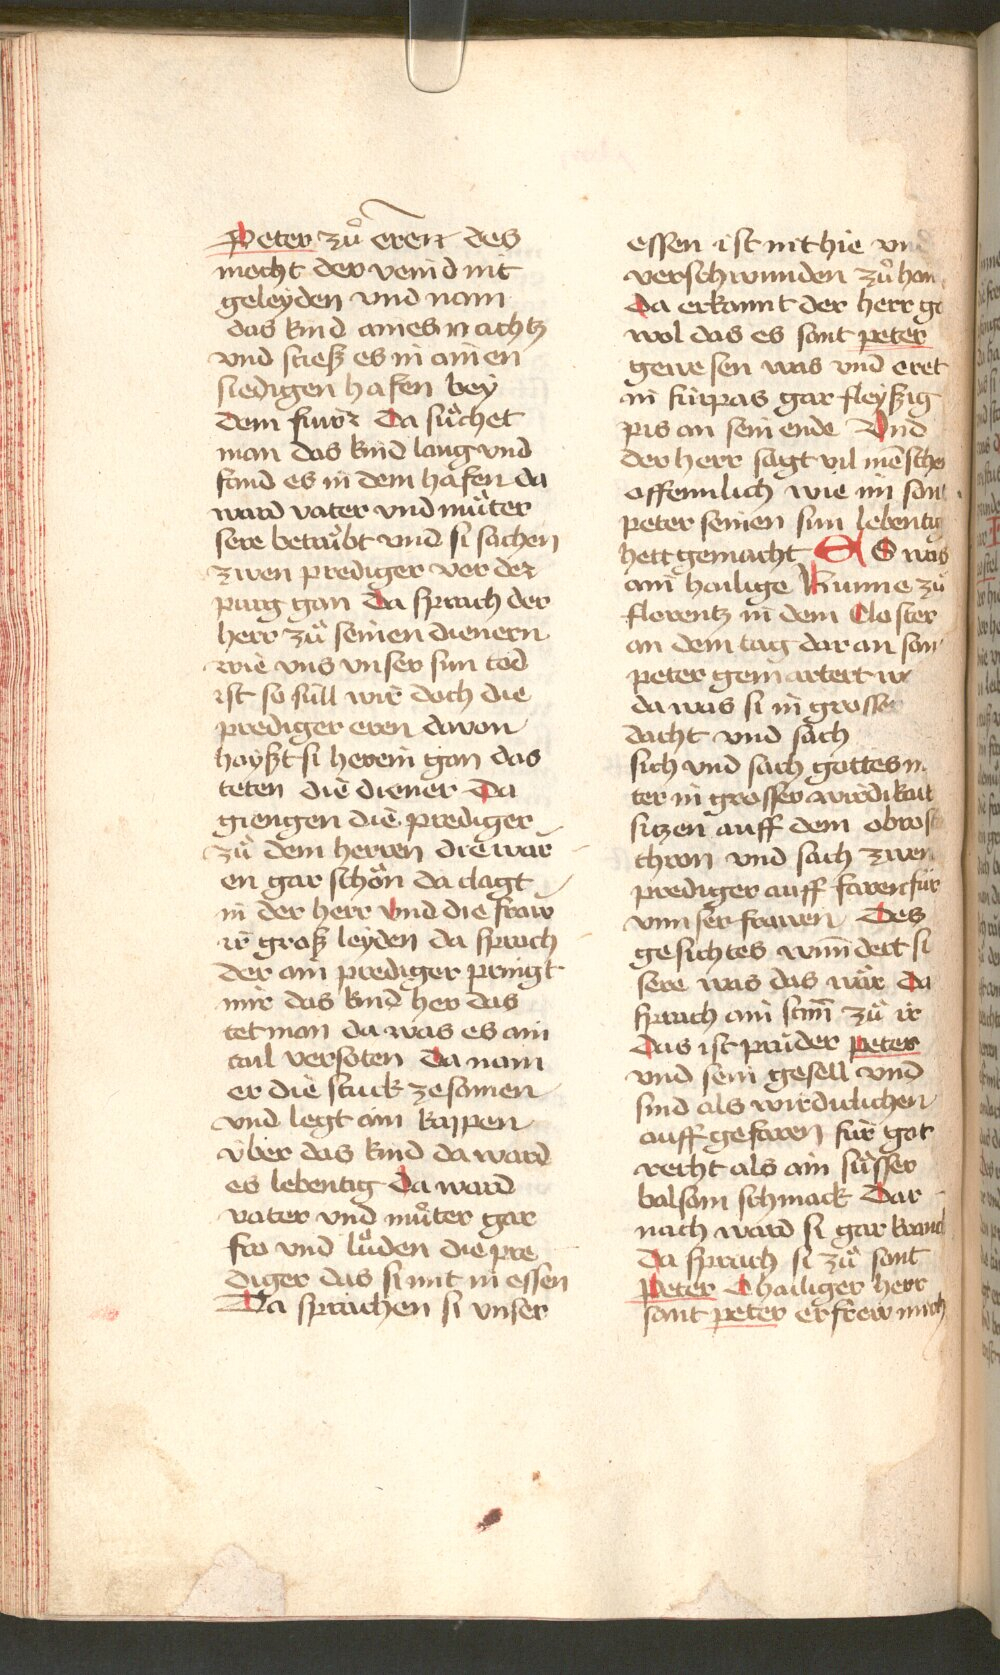 Peter zů eren des
mocht der veind nit
geleyden vnd nam
das kind aines nachtz
vnd stieß es in ainen
siedigen hafen bey
dem fiwr Da sůchet
man das kind lang vnd
fand es in dem hafen da
ward vater vnd můter
sere betrübt vnd si sachen
zwen prediger vor der
purg gan Da sprach der
herr zů seinen dienern
wie vns vnser sun tod
ist so süll wir doch die
prediger eren davon
hayßt si herein gan das
teten die diener Da
giengen die prediger
zů dem herren die war
en gar schön da clagt
in der herr vnd die fraw
ir groß leyden da sprach
der ain prediger pringt
mir das kind her das
tet man da was es ain
tail versoten Da nam
er die stuck zesamen
vnd legt ain kappen
über das kind da ward
es lebentig Da ward
vater vnd můter gar
fro vnd lůden die pre
diger das si mit in essen
Da sprachen si vnser
essen ist nit hie vnd
verschwunden zů han
Da erkannt der herr
wol das es sant peter
gewesen was vnd eret
in fürpas gar fleyßig
pis an sein ende Vnd
der herr sagt vil mensche
offennlich wie im sant
peter seinen sun lebentig
hett gemacht Es was
ain hailige Nunne zů
florentz in dem Closter
an dem tag dar an sant
peter gemartert
da was si in grosser
dacht vnd sach
sich vnd sach gottes
ter in grosser wirdikait
sitzen auff dem obrost
thron vnd sach zwen
prediger auff faren für
vnnser frawen Des
gesichtes wundert si
sere was das wär Da
sprach ain stim zů ir
Das ist průder peter
vnd sein gesell vnd
sind als wirdiclichen
auff gefaren für got
recht als ain süsser
balsam schmack Dar
nach ward si gar kranck
Da sprach si zů sant
Peter O hailiger herr
sant peter erfrew mich